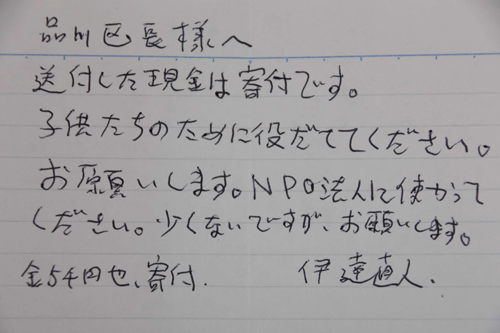 品川区長様へ
送付した現金は寄付です。
子供たちのために役だててください。
お願いします。NPO法人に使かって
ください。少くないですが、お願いします。
金5千円也、寄付.
伊達直人.